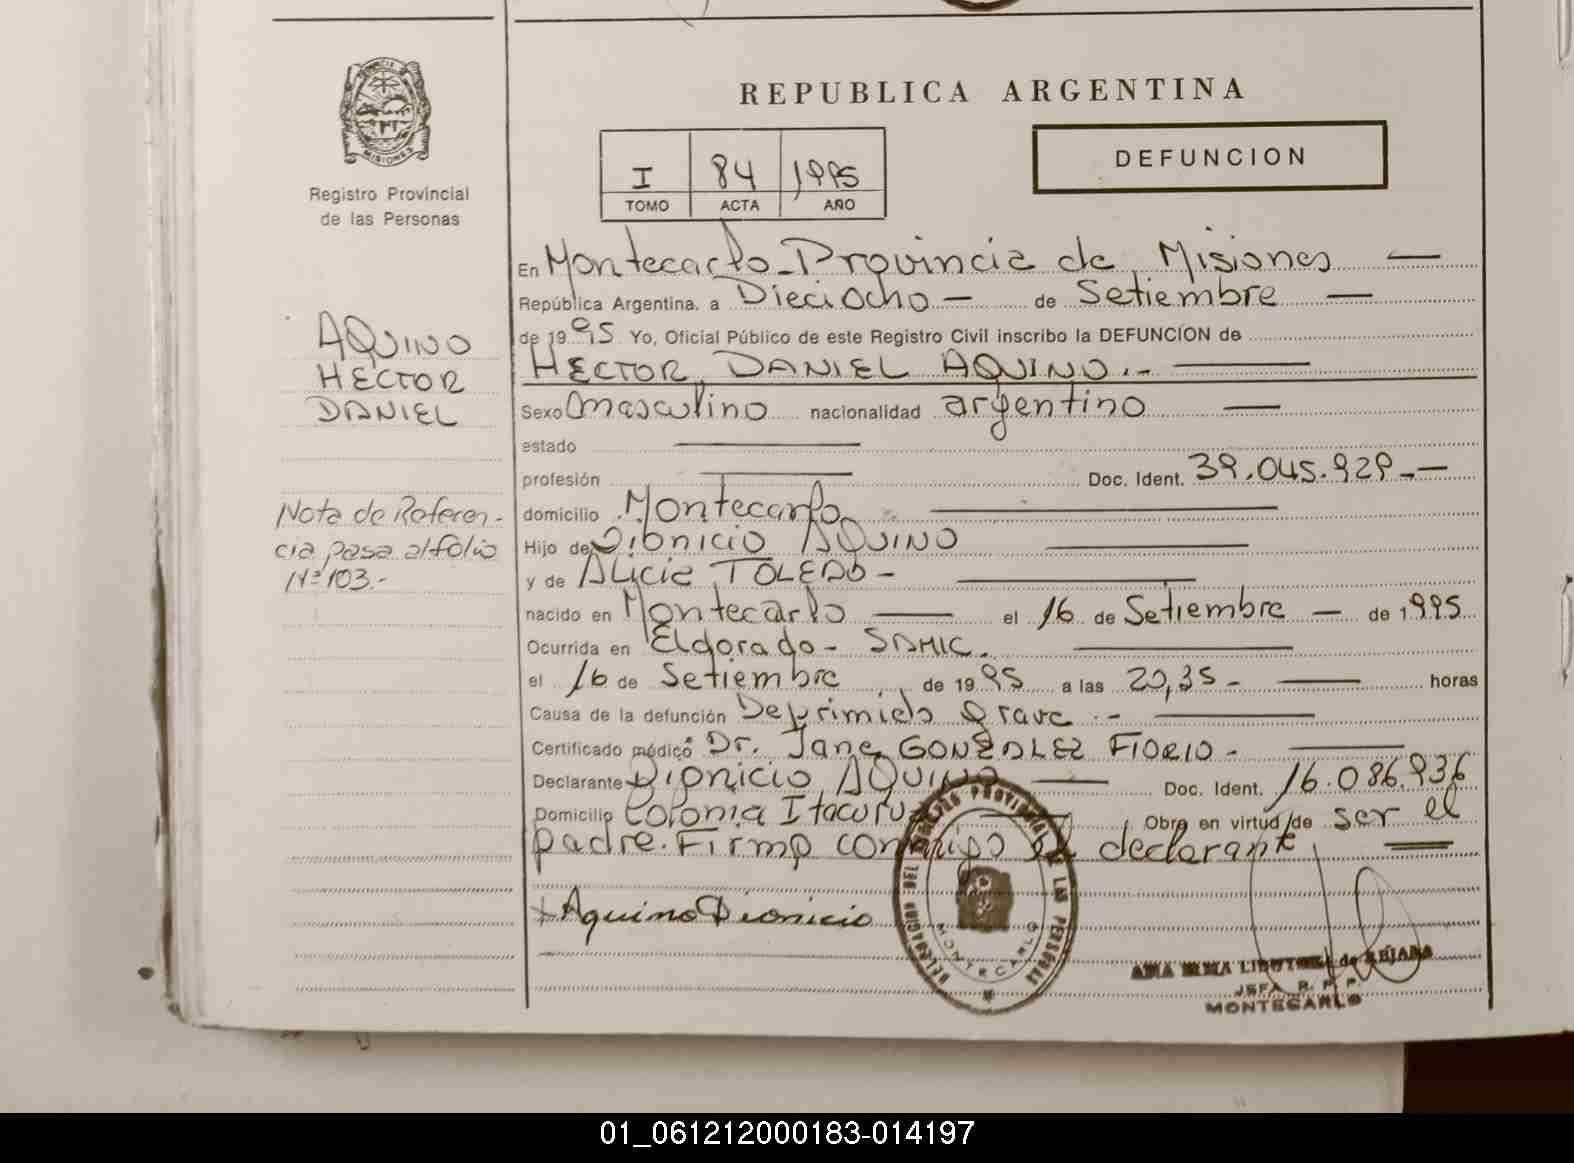 REPUBLICA ARGENTINA
MISIONES
Registro Provincial
de las Personas
I 84 1995
TOMO ACTA AÑO
DEFUNCION
AQUINO
HECTOR
DANIEL
Nota de Referen-
cia pasa al folio
Nº 103.-
En Montecarlo - Provincia de Misiones —
República Argentina, a Dieciocho — de Setiembre —
de 1995 Yo, Oficial Público de este Registro Civil inscribo la DEFUNCION de
HECTOR DANIEL AQUINO.- —
Sexo masculino nacionalidad argentino —
estado —
profesión — Doc. Ident. 39.045.929.- —
domicilio Montecarlo —
Hijo de Dionicio AQUINO —
y de Alicia TOLEDO - —
nacido en Montecarlo — el 16 de Setiembre — de 1995
Ocurrida en Eldorado - SAMIC. —
el 16 de Setiembre de 1995 a las 20,35 - — horas
Causa de la defunción Deprimido Grave .- —
Certificado médico Dr. Jane GONZALEZ FIORIO - —
Declarante Dionicio AQUINO — Doc. Ident. 16.086.936
Domicilio Colonia Itacuruz — Obra en virtud de ser el
padre. Firma conmigo el declarante —
Aquino Dionicio
DELEGACION DEL REGISTRO PROVINCIAL DE LAS PERSONAS
MONTECARLO
ANA de BEJARO
JEFA R. P. P.
MONTECARLO
01_061212000183-014197